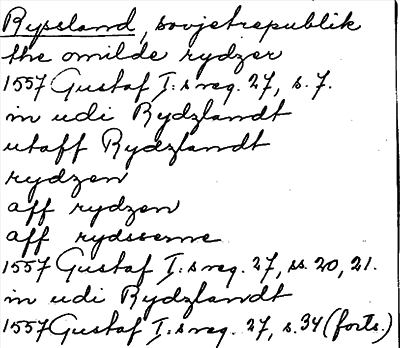 Ryssland, sovjetrepublik
the omilde rydzer
1557 Gustaf I:s reg. 27, s. 7.
in udi Rydzlandt
utaff Rydzlandt
rydzen
aff rydzen
aff rydsserne
1557 Gustaf I:s reg. 27, ss. 20, 21.
in udi Rydzlandt
1557 Gustaf I:s reg. 27, s. 34 (forts.)